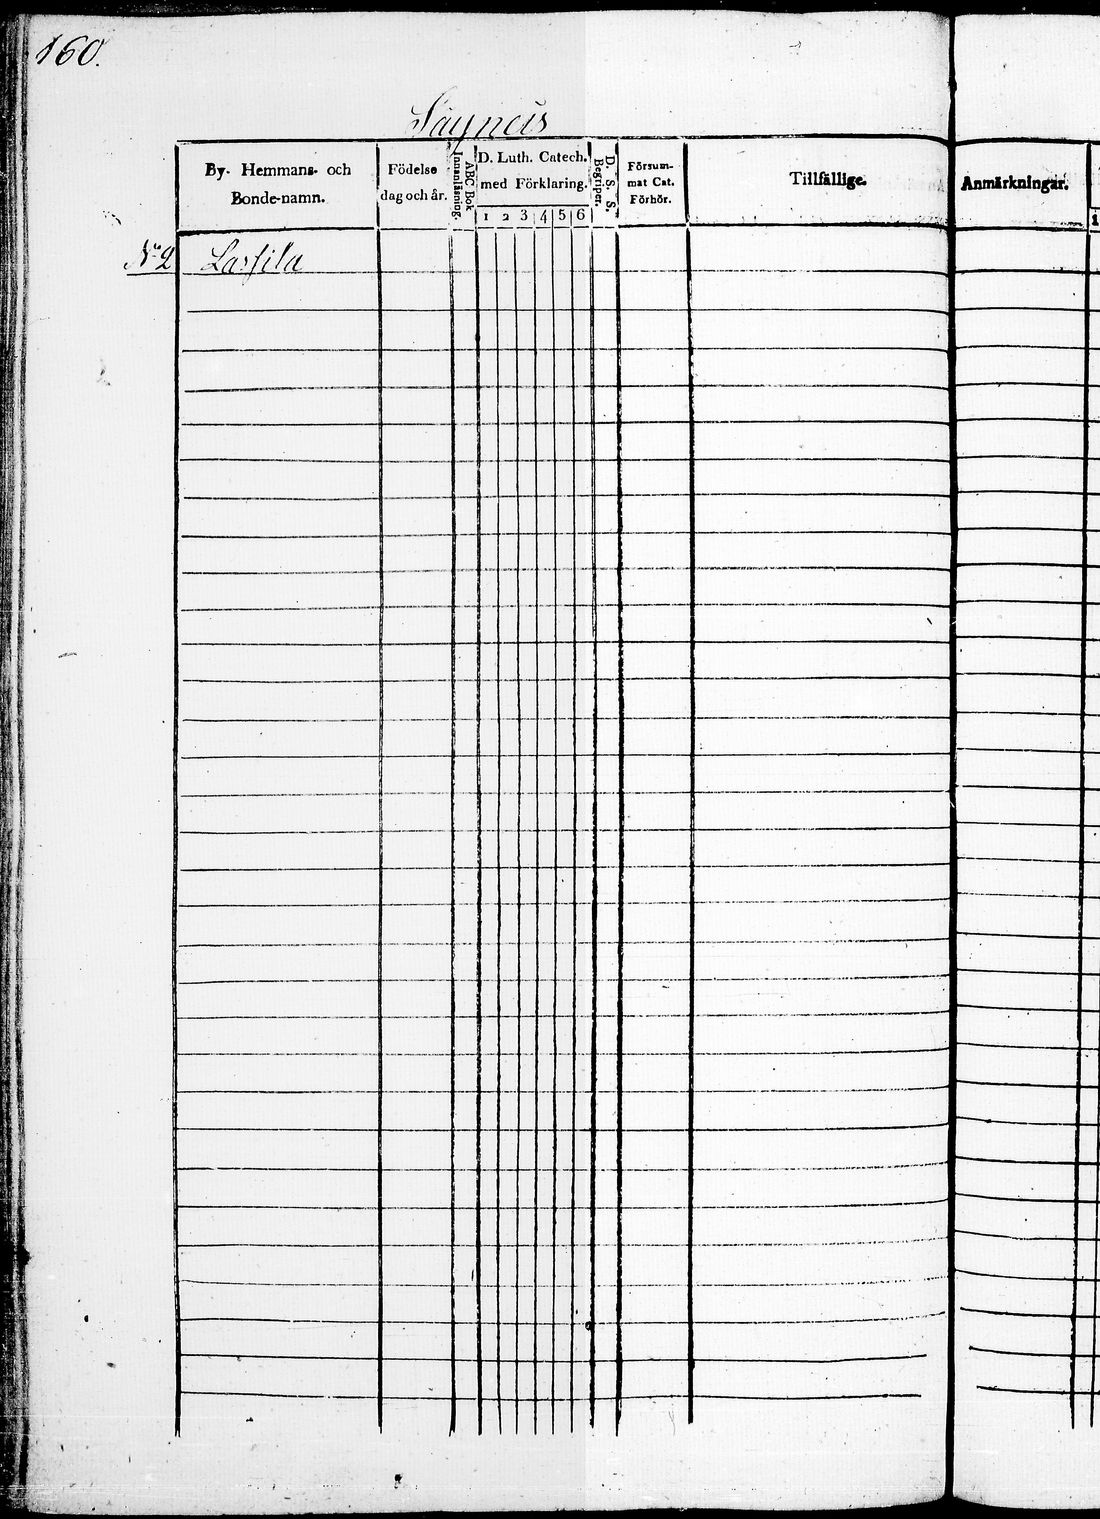 160.
Säyneis
By- Hemmans- och Bonde-namn.
Födelse dag och år.
ABC Bok Innanläsning.
D. Luth. Catech. med Förklaring.
1 2 3 4 5 6
D. S. S. Begriper.
Försummat Cat. Förhör.
Tillfällige.
Anmärkningar.
1
No 2 Lassila